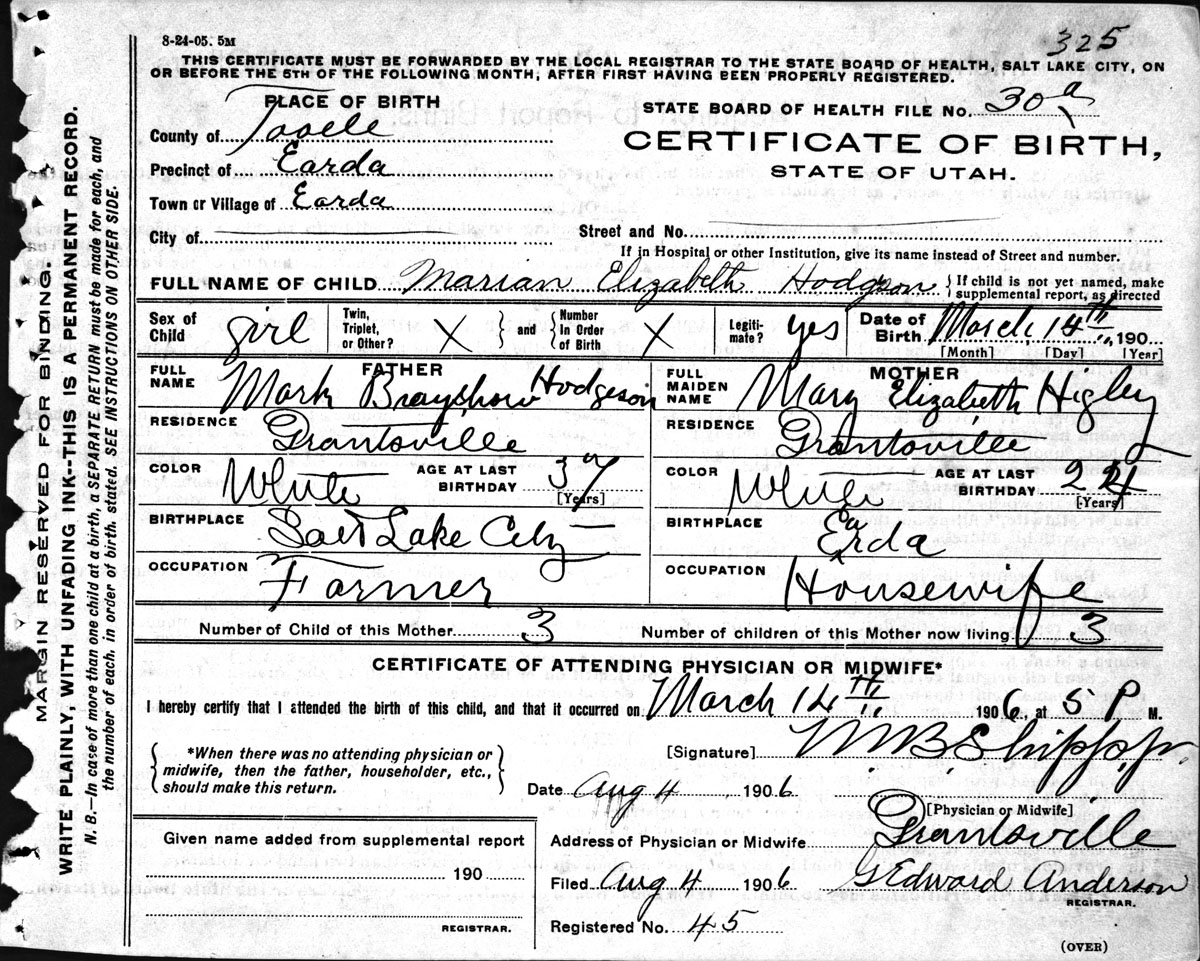 8-24-05. 5M
325
THIS CERTIFICATE MUST BE FORWARDED BY THE LOCAL REGISTRAR TO THE STATE BOARD OF HEALTH, SALT LAKE CITY, ON
OR BEFORE THE 5TH OF THE FOLLOWING MONTH, AFTER FIRST HAVING BEEN PROPERLY REGISTERED.
PLACE OF BIRTH
STATE BOARD OF HEALTH FILE No. 30a
County of Tooele
CERTIFICATE OF BIRTH,
STATE OF UTAH.
Precinct of Earda
Town or Village of Earda
City of
Street and No.
If in Hospital or other Institution, give its name instead of Street and number.
FULL NAME OF CHILD Marian Elizabeth Hodgson { If child is not yet named, make
supplemental report, as directed
Sex of Child girl
Twin, Triplet, or Other? X } and { Number In Order of Birth X
Legiti-mate? yes
Date of Birth March, 14th, 190
[Month] [Day] [Year]
FATHER
FULL NAME Mark Brayshow Hodgeson
MOTHER
FULL MAIDEN NAME Mary Elizabeth Higley
RESIDENCE Grantsville
RESIDENCE Grantsville
COLOR White AGE AT LAST BIRTHDAY 37 [Years]
COLOR White AGE AT LAST BIRTHDAY 24 [Years]
BIRTHPLACE Salt Lake City
BIRTHPLACE Earda
OCCUPATION Farmer
OCCUPATION Housewife
Number of Child of this Mother 3
Number of children of this Mother now living 3
CERTIFICATE OF ATTENDING PHYSICIAN OR MIDWIFE*
I hereby certify that I attended the birth of this child, and that it occurred on March 14th, 1906, at 5 P M.
{ *When there was no attending physician or
midwife, then the father, householder, etc.,
should make this return. }
[Signature] M B Shipp, jr
[Physician or Midwife]
Date Aug 4 1906
Given name added from supplemental report
190
REGISTRAR.
Address of Physician or Midwife Grantsville
Filed Aug 4 1906 G Edward Anderson
REGISTRAR.
Registered No. 45
(OVER)
MARGIN RESERVED FOR BINDING.
WRITE PLAINLY, WITH UNFADING INK--THIS IS A PERMANENT RECORD.
N. B.—In case of more than one child at a birth, a SEPARATE RETURN must be made for each, and
the number of each, in order of birth, stated. SEE INSTRUCTIONS ON OTHER SIDE.